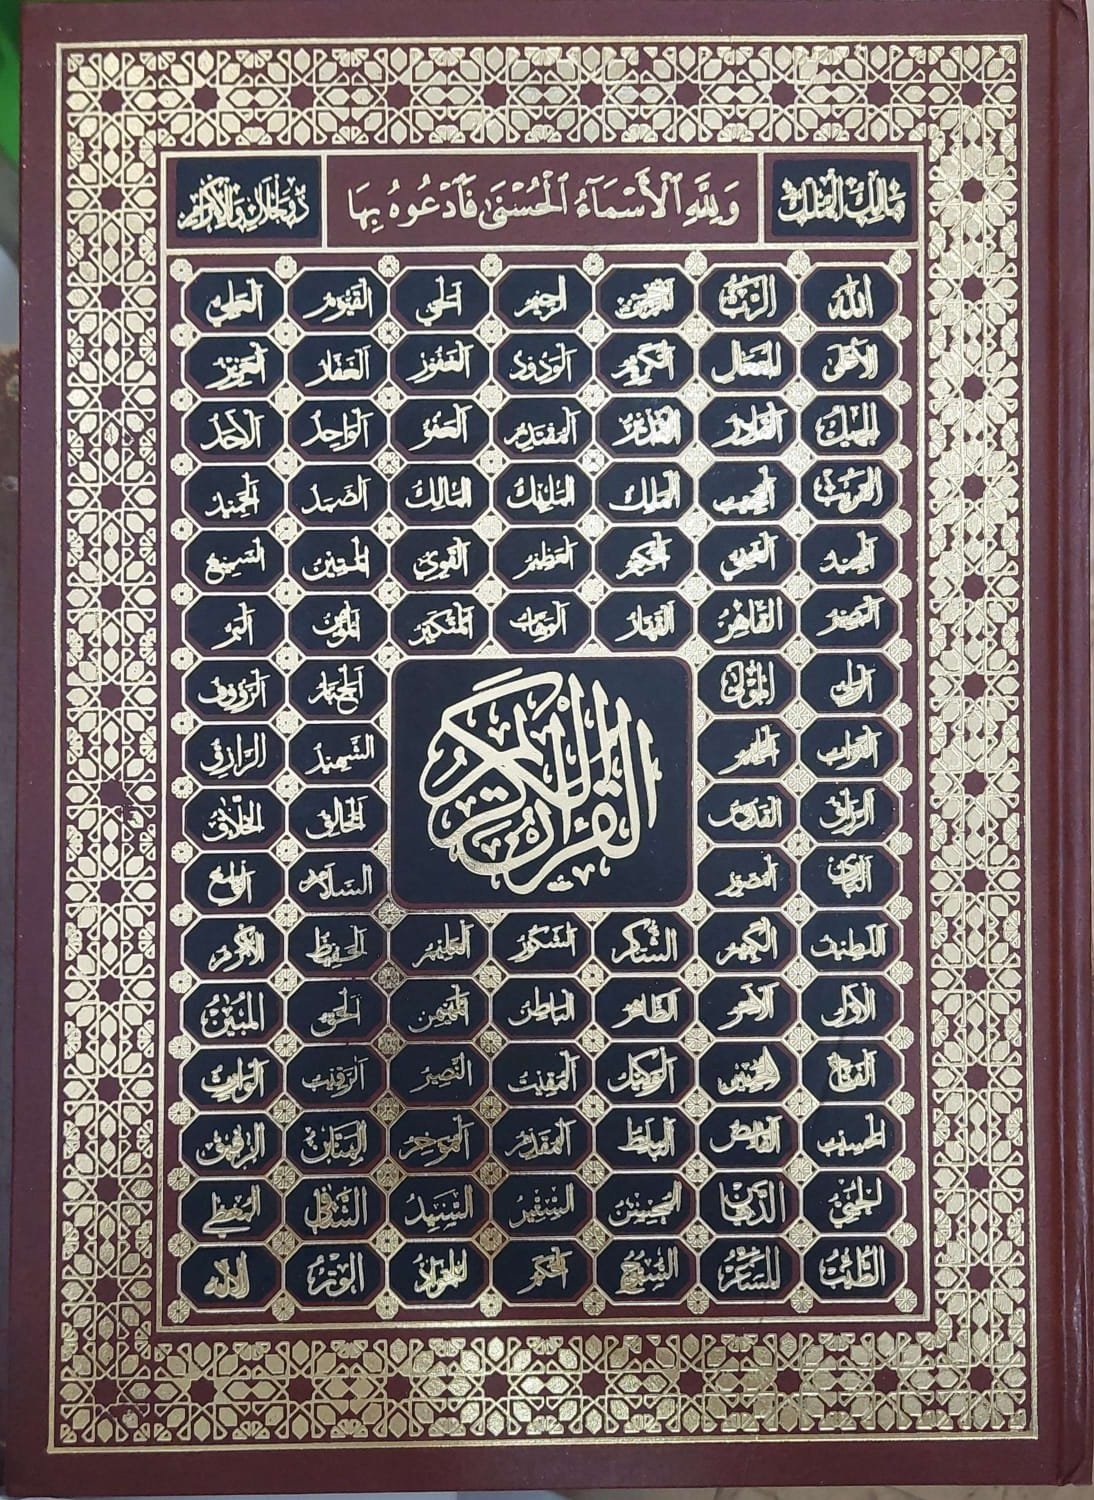 مالك الملك وَلِلَّهِ ٱلْأَسْمَآءُ ٱلْحُسْنَىٰ فَٱدْعُوهُ بِهَا ذو الجلال والإكرام
الله الرب الرحمن الرحيم الحي القيوم العلي
الأعلى المتعال الكريم الودود الغفور الغفار العزيز
القادر القدير المقتدر العفو الواحد الأحد
القريب المجيب الملك المليك المالك الصمد الحميد
المجيد الغني الحكيم العظيم القوي المتين السميع
البصير القاهر القهار الوهاب المتكبر المؤمن البر
الولي المولى الجبار الرؤوف
التواب الحليم الشهيد الرازق
الرزاق القدوس الخالق الخلاق
القرآن الكريم
البارئ المصور السلام الواسع
اللطيف الكبير الشاكر الشكور العليم الحفيظ الأكرم
الأول الآخر الظاهر الباطن المهيمن الحق المبين
الفتاح الوكيل المقيت النصير الرقيب الوارث
الحسيب القابض الباسط المقدم المؤخر المنان الرفيق
الحيي الديان المحسن السيد الشافي المعطي
الطيب السبوح الحكم الجواد الوتر الإله